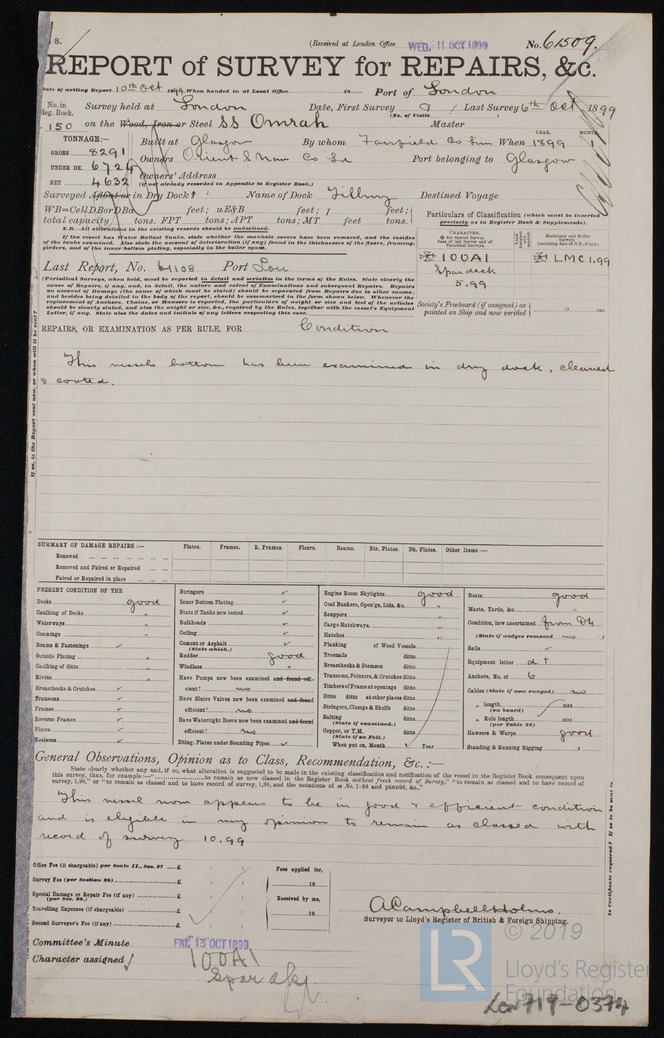 (Received at London Office WED. 11 OCT 1899
No. 61509.
REPORT OF SURVEY for REPAIRS, &c.
Date of writing Report 10th Oct 1899 When handed in at Local Office 18 Port of London
No. in Reg. Book. Survey held at London Date, First Survey Last Survey 6th Oct 1899
(No. of Visits
150 on the Wood, Iron or Steel SS Omrah Master
TONNAGE:— Built at Glasgow By whom Fairfield Co Lim When 1899
YEAR. MONTH.
GROSS 8291 Owners Orient S Nav Co Ld Port belonging to Glasgow
UNDER DK. 6724 Owners' Address
NET 4632 (if not already recorded in Appendix to Register Book.)
Surveyed Afloat or in Dry Dock? Name of Dock Tilbury Destined Voyage
WB=CellDBorDBa feet; uE&B feet; f feet;
total capacity tons. FPT tons; APT tons; MT feet tons.
N.B.—All alterations in the existing records should be underlined.
If the vessel has Water Ballast Tanks, state whether the manhole covers have been removed, and the insides
of the tanks examined. Also state the amount of deterioration (if any) found in the thicknesses of the floors, framing,
girders, and of the inner bottom plating, especially in the boiler space.
Particulars of Classification (which must be inserted
precisely as in Register Book & Supplements).
CHARACTER.
Machinery and Boiler Surveys
100A1 LMC 1.99
Spar deck
5.99
Last Report, No. 61108 Port Lon
(Periodical Surveys, when held, must be reported in detail and seriatim in the terms of the Rules. State clearly the
cause of Repairs, if any, and, in detail, the nature and extent of Examinations and subsequent Repairs. Repairs
on account of Damage (the cause of which must be stated) should be separated from Repairs due to other causes;
and besides being detailed in the body of the report, should be summarised in the form shown below. Whenever the
replacement of Anchors, Chains, or Hawsers is reported, the particulars of weight or size, &c., and test of the articles
should be clearly stated, and also the weight or size, &c., required by the Rules, together with the vessel's Equipment
Letter, if any. State also the dates and initials of any letters respecting this case.
Society's Freeboard (if assigned) as
painted on Ship and now verified
REPAIRS, OR EXAMINATION AS PER RULE, FOR Condition
This vessels bottom has been examined in dry dock, cleaned
& coated.
SUMMARY OF DAMAGE REPAIRS:— Plates. Frames. R. Frames. Floors. Beams. Str. Plates. Dk. Plates. Other Items:—
Renewed
Removed and Faired or Repaired
Faired or Repaired in place
PRESENT CONDITION OF THE
Decks good
Caulking of Decks "
Waterways "
Coamings "
Beams & Fastenings ✓
Outside Plating "
Caulking of ditto "
Rivets "
Breasthooks & Crutches ✓
Transoms ✓
Frames ✓
Reverse Frames ✓
Floors ✓
Keelsons ✓
Stringers ✓
Inner Bottom Plating ✓
State if Tanks now tested ✓
Bulkheads ✓
Ceiling ✓
Cement or Asphalt ✓
(State which.)
Rudder good
Windlass "
Have Pumps now been examined and found effi-
cient? no
Have Sluice Valves now been examined and found
efficient? no
Have Watertight Doors now been examined and found
efficient? no
Dblng. Plates under Sounding Pipes ✓
Engine Room Skylights good
Coal Bunkers, Open'gs, Lids, &c. "
Scuppers "
Cargo Hatchways "
Hatches "
Planking of Wood Vessels
Treenails ditto
Breasthooks & Stemson ditto
Transoms, Pointers, & Crutches ditto
Timbers of Frame at openings ditto
Ditto ditto at other places ditto
Stringers, Clamps & Shelfs ditto
Salting ditto
(State if examined.)
Copper, or Y.M. ditto
(State if on Felt.)
When put on, Month Year
Boats good
Masts, Yards, &c. "
Condition, how ascertained from Dk
(State if wedges removed no )
Sails ✓
Equipment letter d †
Anchors, No. of 6
Cables (State if now ranged) no
„ length size
(on board)
„ Rule length size
(per Table 22)
Hawsers & Warps good
Standing & Running Rigging "
General Observations, Opinion as to Class, Recommendation, &c. :—
State clearly whether any and, if so, what alteration is suggested to be made in the existing classification and notification of the vessel in the Register Book consequent upon
this survey, thus, for example:—"to remain as now classed in the Register Book without fresh record of Survey," "to remain as classed and to have record of
survey 1,98," or "to remain as classed and to have record of survey, 1,98, and the notations of
This vessel now appears to be in good & efficient condition
and is eligible in my opinion to remain as classed with
record of survey 10.99
Office Fee (if chargeable) per Scale II., Sec. 27 £
Survey Fee (per Section 28) £
Special Damage or Repair Fee (if any) £
(per Sec. 28.)
Travelling Expenses (if chargeable) £
Second Surveyor's Fee (if any) £
Fees applied for,
18
Received by me,
18
A Campbell Holms.
Surveyor to Lloyd's Register of British & Foreign Shipping.
Committee's Minute FRI. 13 OCT 1899
Character assigned 100A1
Spar dk
LR © 2019
Lloyd's Register
Foundation
Lon719-0374